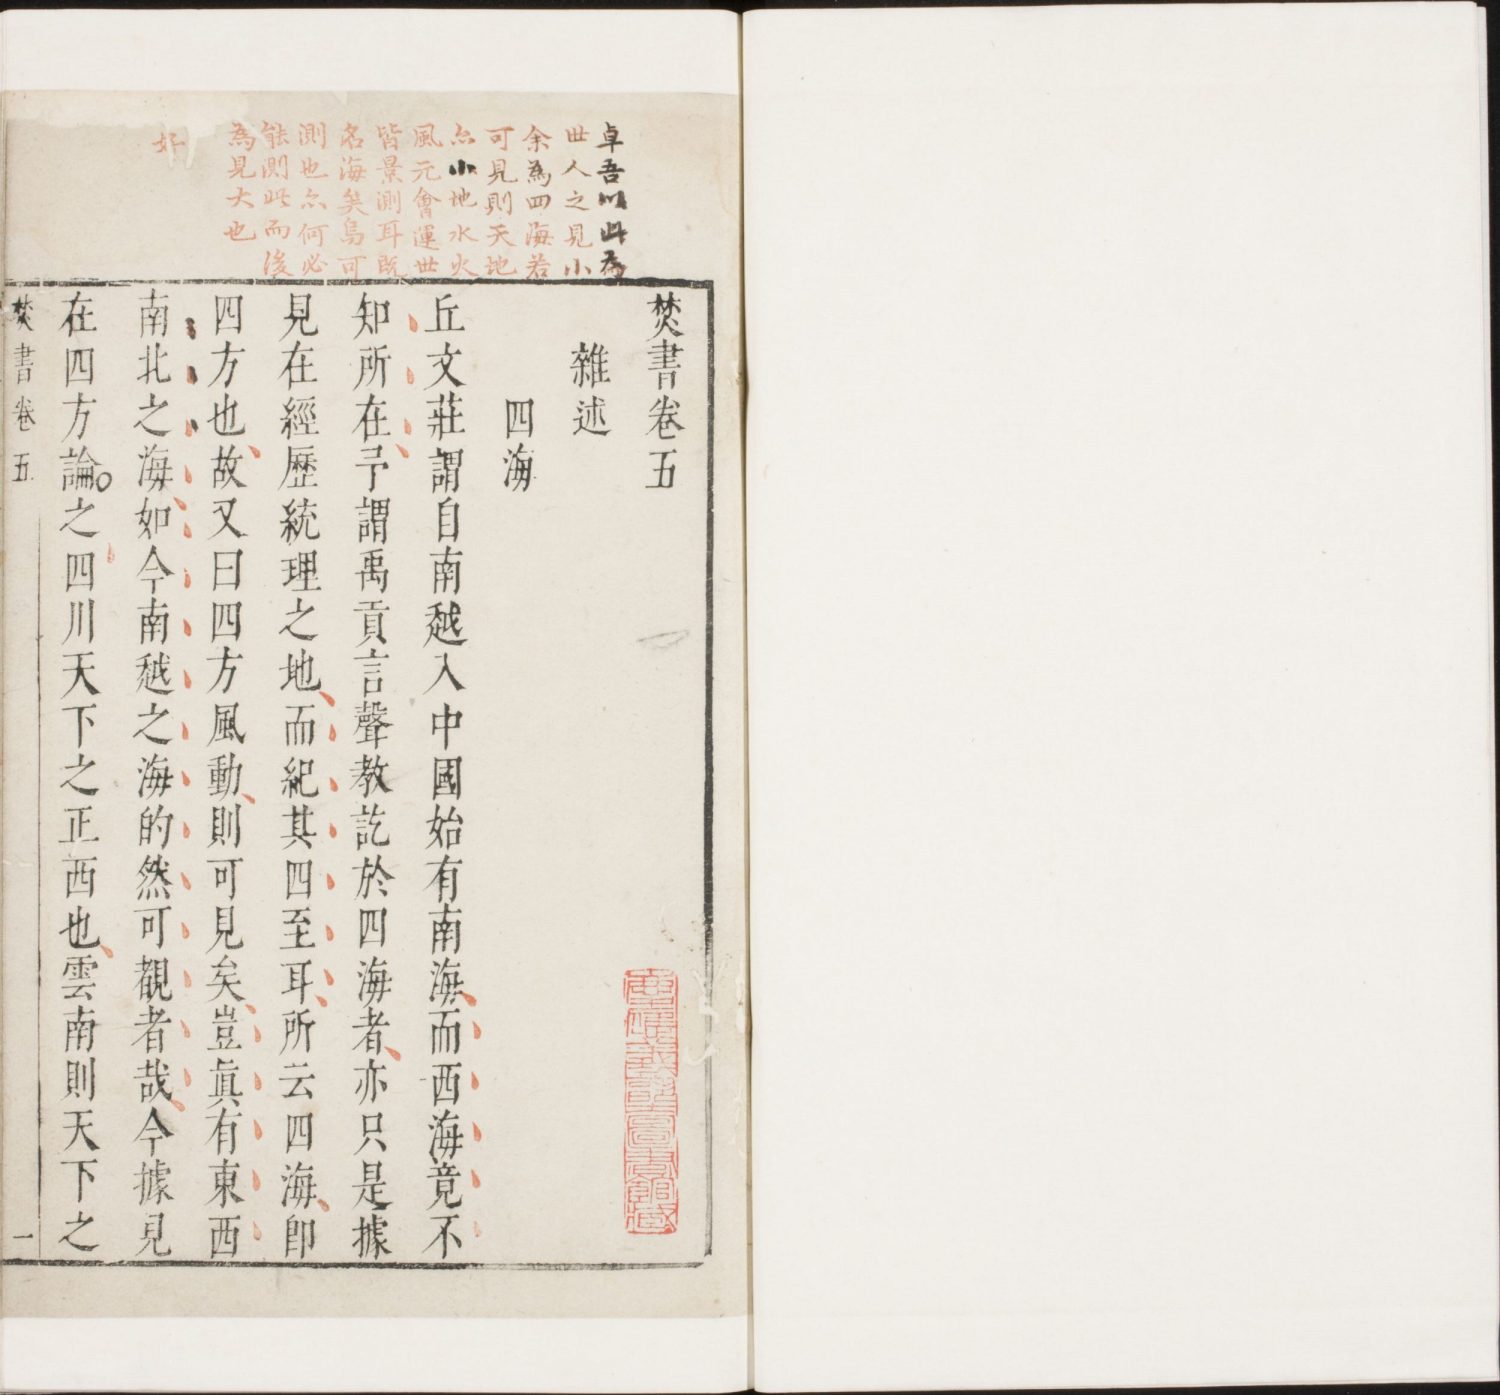 卓吾以此為
世人之見小
余為四海若
可見則天地
亦小地水火
風元會運世
皆景測耳既
名海矣烏可
測也亦何必
能測此而後
為見大也
好
焚書卷五
雜述
四海
丘文莊謂自南越入中國始有南海而西海竟不
知所在予謂禹貢言聲教訖於四海者亦只是據
見在經歷統理之地而紀其四至耳所云四海卽
四方也故又曰四方風動則可見矣豈眞有東西
南北之海如今南越之海的然可覩者哉今據見
在四方論之四川天下之正西也雲南則天下之
焚書卷五
一